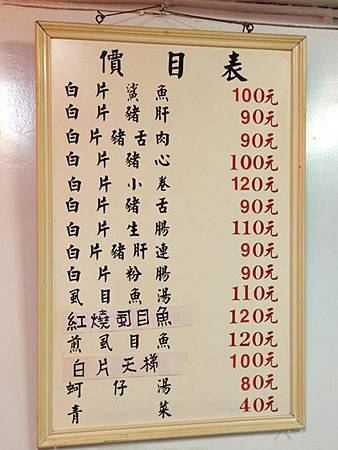 價目表
白片鯊魚 100元
白片豬肝 90元
白片豬舌肉 90元
白片豬心 100元
白片小卷 120元
白片豬舌 90元
白片生腸 110元
白片豬肝連 90元
白片粉腸 90元
虱目魚湯 110元
紅燒虱目魚 120元
煎虱目魚 120元
白片天梯 100元
蚵仔湯 80元
青菜 40元